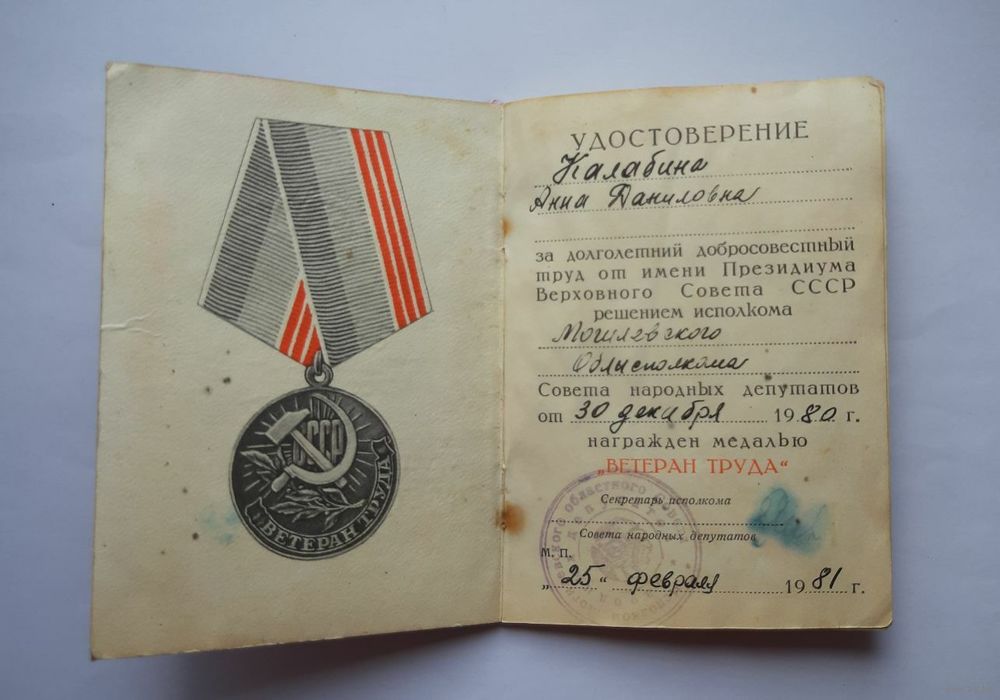 СССР
ВЕТЕРАН ТРУДА
УДОСТОВЕРЕНИЕ
Калабина
Анна Даниловна
за долголетний добросовестный
труд от имени Президиума
Верховного Совета СССР
решением исполкома
Могилевского
Облисполкома
Совета народных депутатов
от 30 декабря 1980 г.
награжден медалью
„ВЕТЕРАН ТРУДА“
Секретарь исполкома
Совета народных депутатов
м. п.
„25“ февраля 1981 г.
областного